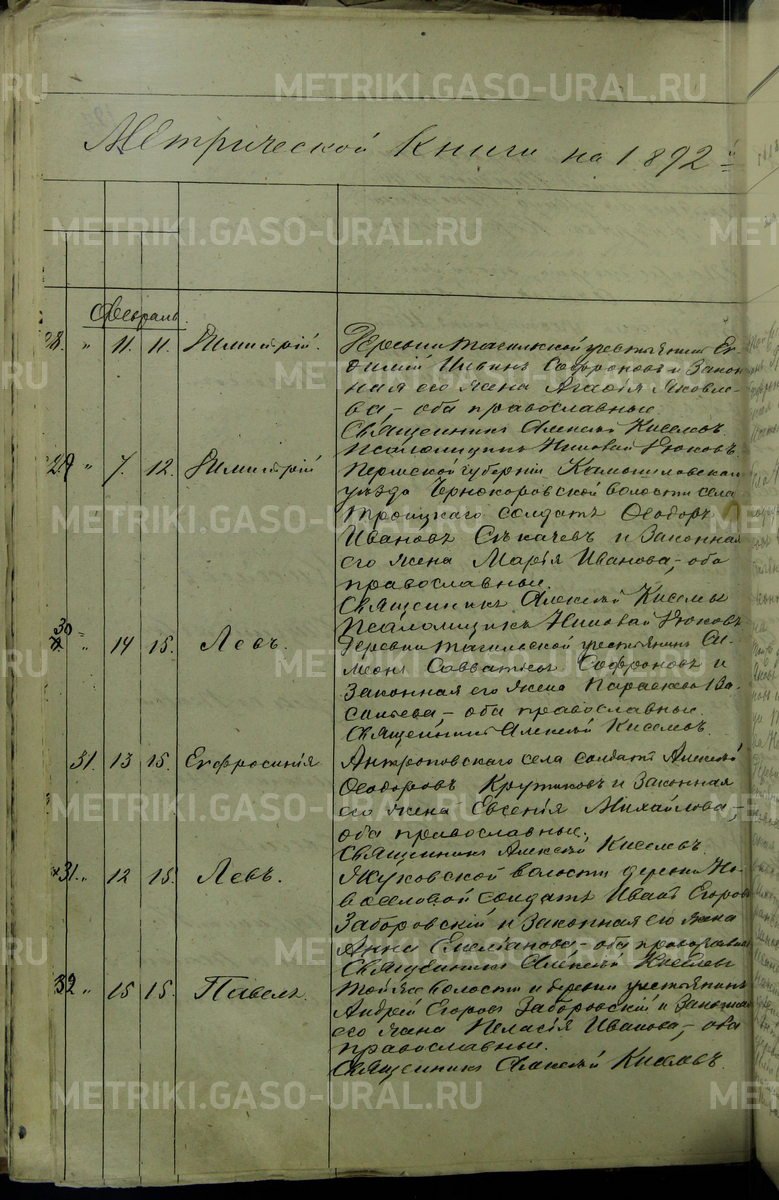 METRIKI.GASO-URAL.RU
Метрической Книги на 1892 й
Февраль.
28. " 11. 11. Димитрій. Деревни Тагильской крестьянинъ Ев-
фимій Ивановъ Софроновъ и закон-
ная его жена Агафія Яковле-
ва, – оба православные.
Священникъ Алексѣй Киселевъ
Псаломщикъ Николай Дюковъ.
29 " 7. 12. Димитрій Пермской губерніи Камышловскаго
уѣзда Чернокоровской волости села
Троицкаго солдатъ Ѳеодоръ
Ивановъ Секачевъ и законная
его жена Марія Иванова, – оба
православные.
Священникъ Алексѣй Киселевъ
Псаломщикъ Николай Дюковъ
30 " 14 15. Левъ. Деревни Тагильской крестьянинъ Си-
меонъ Савватіевъ Софроновъ и
законная его жена Параскева Ва-
сильева, – оба православные.
Священникъ Алексѣй Киселевъ.
31. 13 15. Евфросинія Антроповскаго села солдатъ Алексѣй
Ѳеодоровъ Крутиковъ и законная
его жена Евгенія Михайлова, –
оба православные.
Священникъ Алексѣй Киселевъ.
31. " 12 15. Левъ. Жуковской волости деревни Но-
воселовой солдатъ Иванъ Егоровъ
Заборовскій и законная его жена
Анна Емеліанова – оба православные
Священникъ Алексѣй Киселевъ
32 " 15 15. Павелъ. Той же волости и деревни крестьянинъ
Андрей Егоровъ Заборовскій и законная
его жена Пелагія Иванова, – оба
православные.
Священникъ Алексѣй Киселевъ.